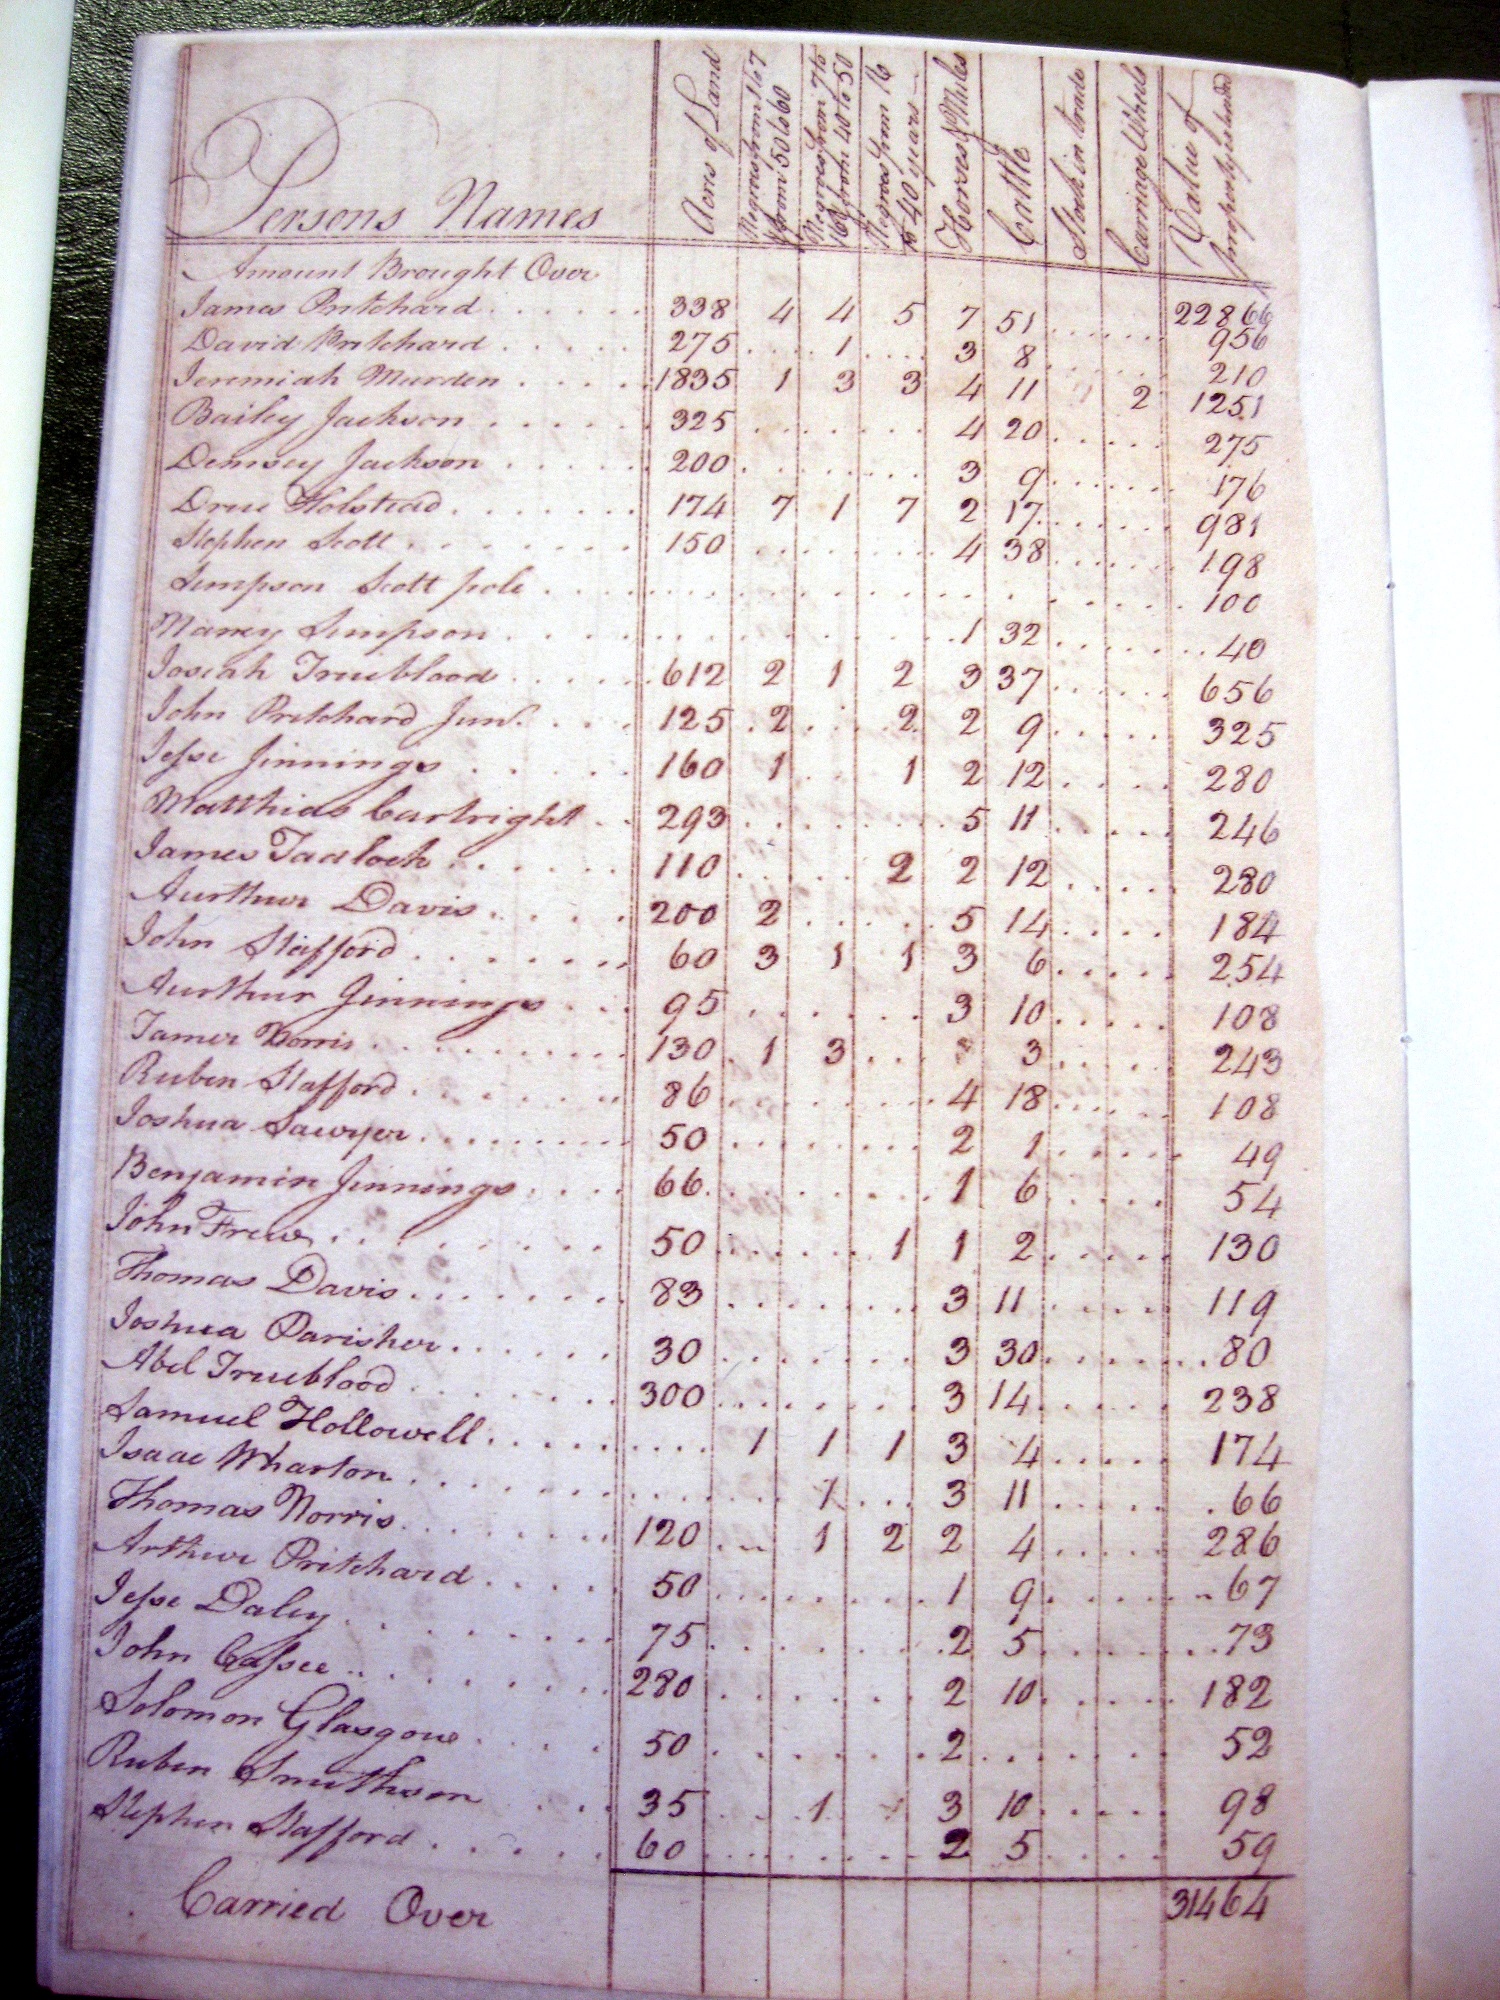 Persons Names Acres of Land Negroes from 1 to 7 & from 50 to 60 Negroes from 7 to 16 & from 40 to 50 Negroes from 16 to 40 years Horses & Mules Cattle Stock in trade Carriage Wheels Value of
Amount Brought Over 22866
James Pritchard 338 4 4 5 7 51 956
David Pritchard 275 1 3 8 210
Jeremiah Murden 1835 1 3 3 4 11 2 1251
Bailey Jackson 325 4 20 275
Demsey Jackson 200 3 9 176
Drue Holstead 174 7 1 7 2 17 981
Stephen Scott 150 4 38 198
Simpson Scott pole 100
Nancy Simpson 1 32 40
Josiah Trueblood 612 2 1 2 3 37 656
John Pritchard Junr. 125 2 2 2 9 325
Jesse Jinnings 160 1 1 2 12 280
Matthias Cartright 293 5 11 246
James Tadlock 110 2 2 12 280
Aurthur Davis 200 2 5 14 184
John Stafford 60 3 1 1 3 6 254
Aurthur Jinnings 95 3 10 108
Tamer Norris 130 1 3 3 243
Ruben Stafford 86 4 18 108
Joshua Sawyer 50 2 1 49
Benjamin Jinnings 66 1 6 54
John Frew 50 1 1 2 130
Thomas Davis 83 3 11 119
Joshua Parisher 30 3 30 80
Abel Trueblood 300 3 14 238
Samuel Hollowell 1 1 1 3 4 174
Isaac Wharton 1 3 11 66
Thomas Norris 120 1 2 2 4 286
Arthur Pritchard 50 1 9 67
Jesse Daley 75 2 5 73
John 280 2 10 182
Solomon Glasgow 50 2 52
Ruben Smithson 35 1 3 10 98
Stephen Stafford 60 2 5 59
Carried Over 31464